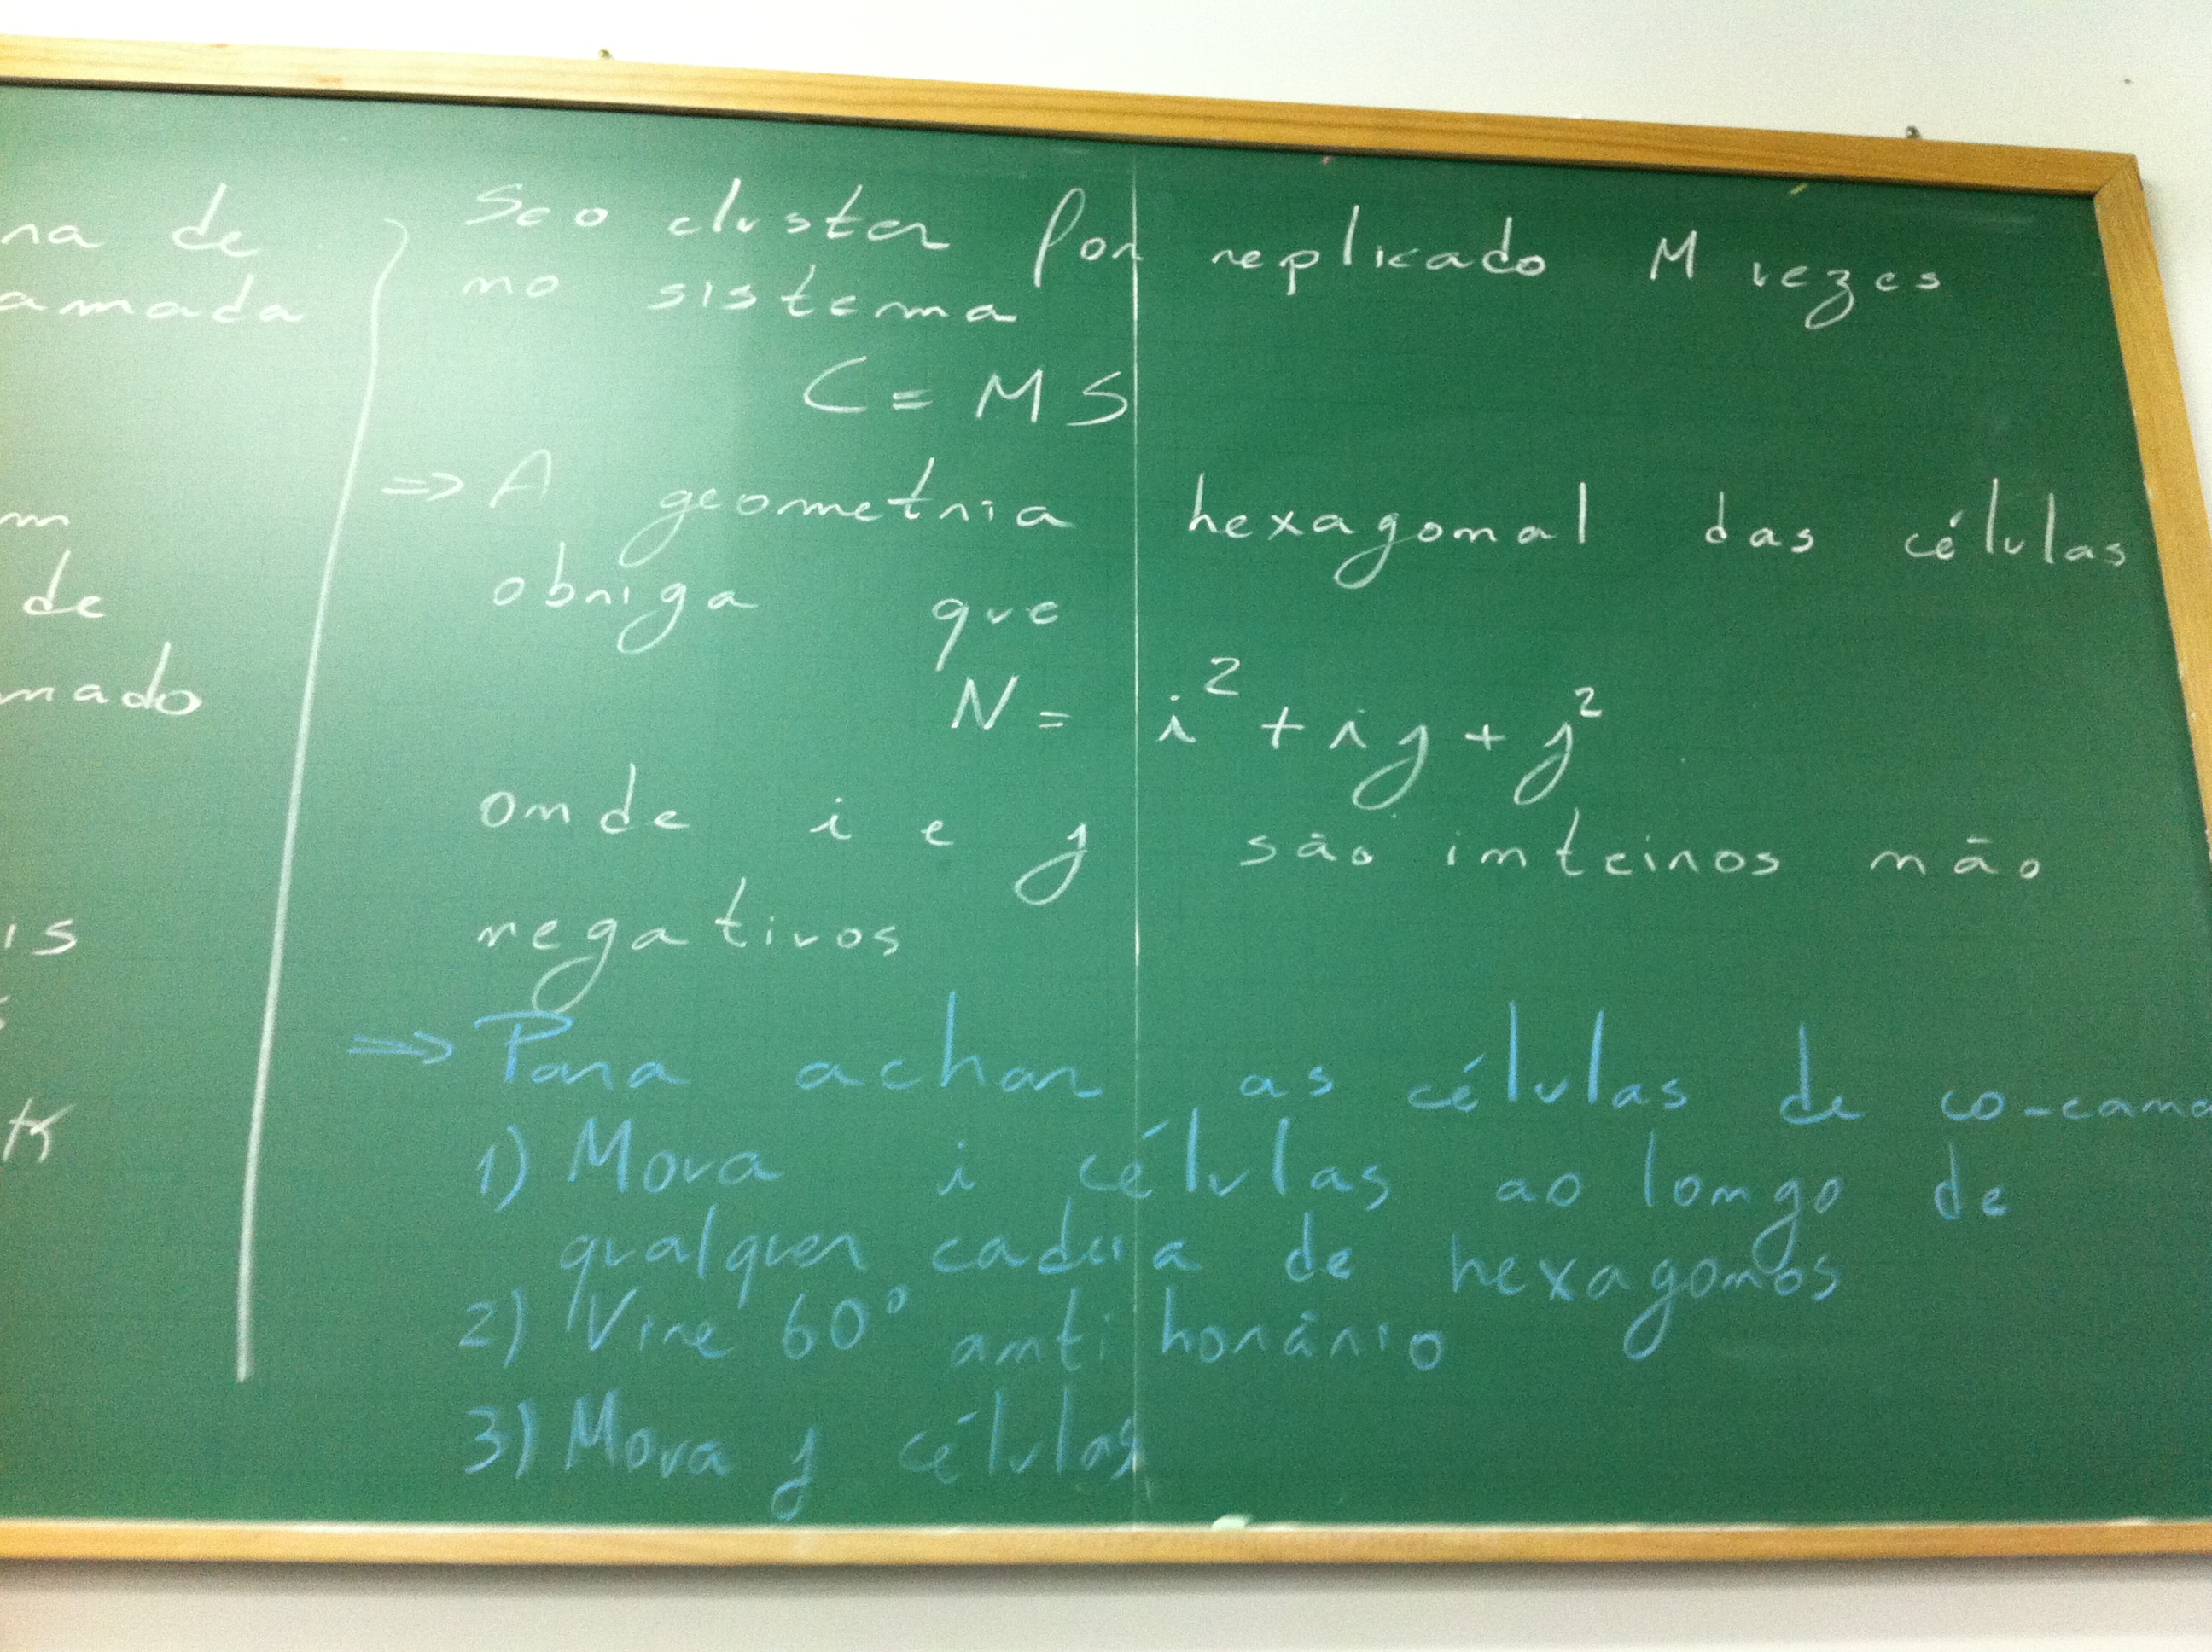 na de
amada
m
de
mado
is
K
Se o cluster for replicado M vezes
no sistema
C = M S
⇒ A geometria hexagonal das células
obriga que
N = i² + ij + j²
onde i e j são inteiros não
negativos
⇒ Para achar as células de co-cana
1) Mova i células ao longo de
qualquer cadeia de hexagonos
2) Vire 60° anti horário
3) Mova j células